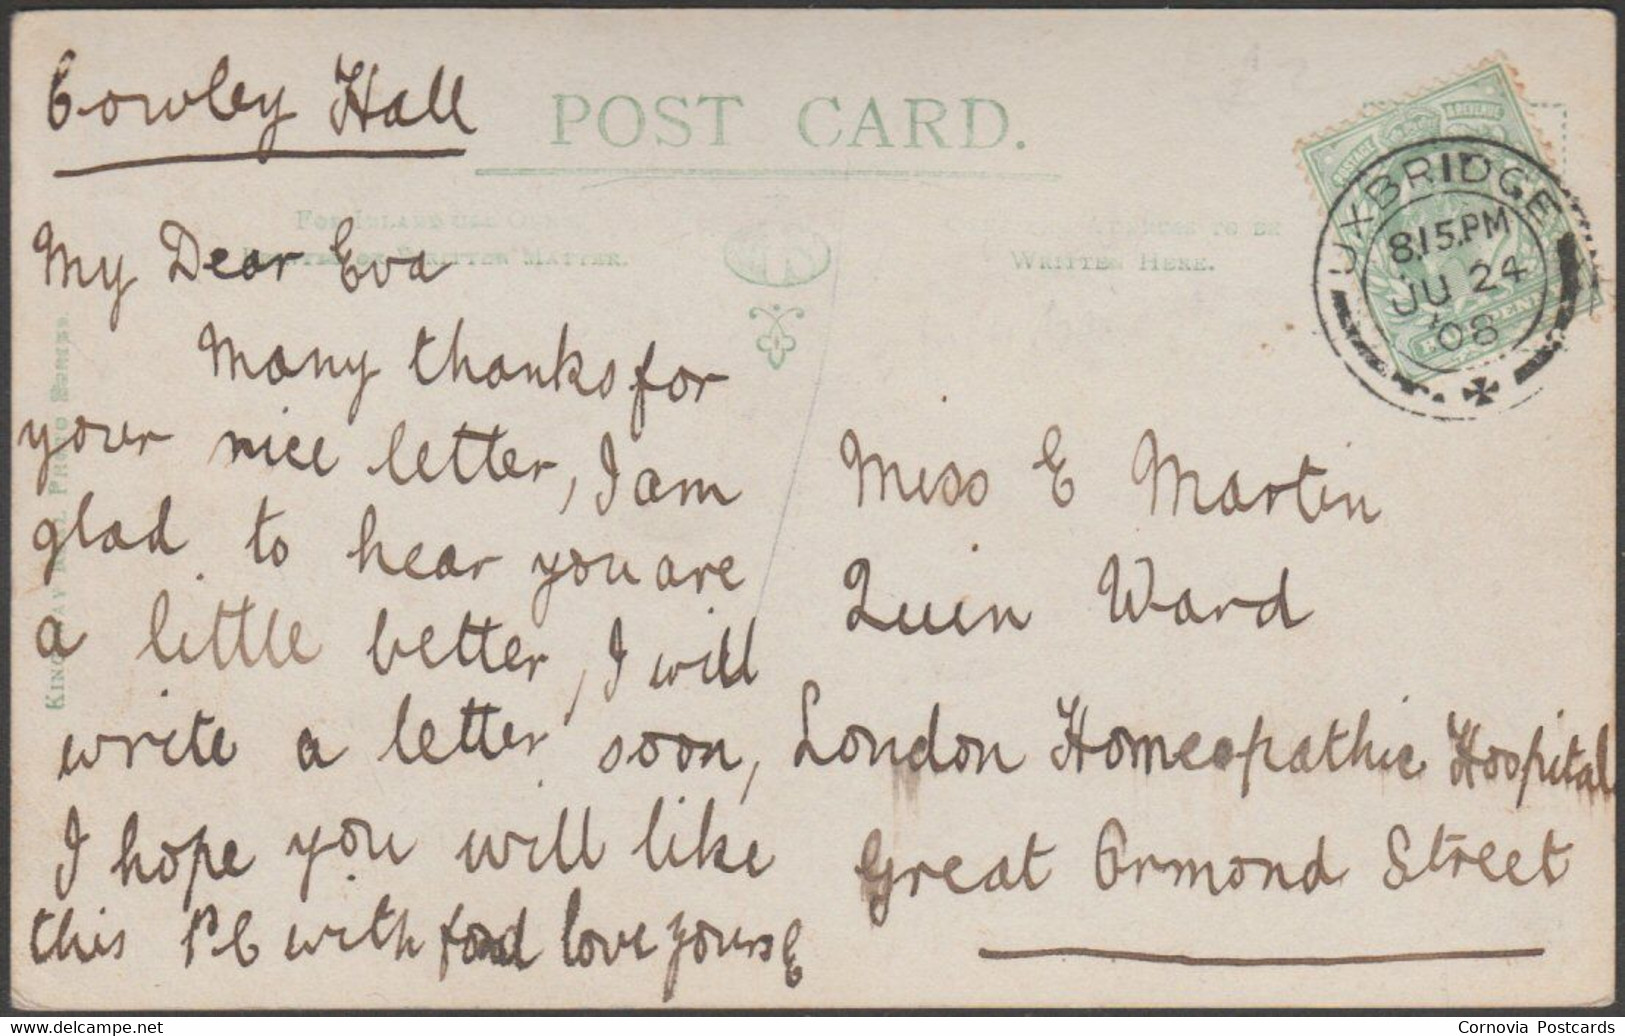 Cowley Hall
POST CARD.
FOR INLAND USE ONLY.
WRITTEN MATTER.
ADDRESS TO BE
WRITTEN HERE.
UXBRIDGE
8.15.PM
JU 24
08
POSTAGE & REVENUE
My Dear Eva
Many thanks for
your nice letter, I am
glad to hear you are
a little better, I will
write a letter soon,
I hope you will like
this P C with fond love yours E
Miss E Martin
Quin Ward
London Homeopathic Hospital
Great Ormond Street
KINGSWAY REAL PHOTO SERIES.
Cornovia Postcards